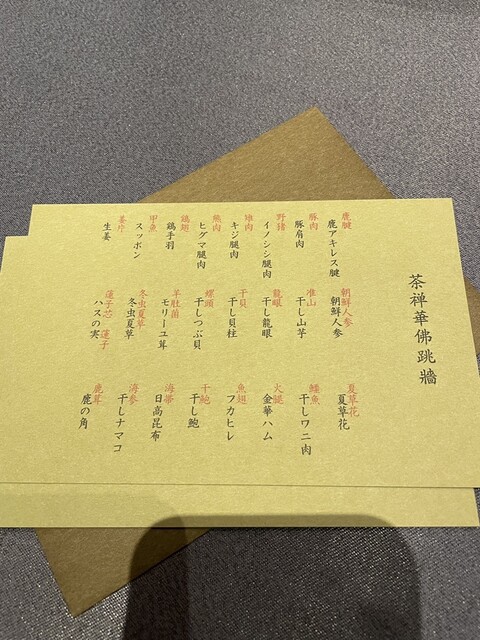 茶禅華佛跳牆
鹿腱
鹿アキレス腱
豚肉
豚肩肉
野猪
イノシシ腿肉
雉肉
キジ腿肉
熊肉
ヒグマ腿肉
鶏翅
鶏手羽
甲魚
スッポン
姜片
生姜
朝鮮人参
朝鮮人参
准山
干し山芋
龍眼
干し龍眼
干貝
干し貝柱
螺頭
干しつぶ貝
羊肚菌
モリーユ茸
冬虫夏草
冬虫夏草
蓮子芯 蓮子
ハスの実
夏草花
夏草花
鰐魚
干しワニ肉
火腿
金華ハム
魚翅
フカヒレ
干鮑
干し鮑
海帯
日高昆布
海参
干しナマコ
鹿茸
鹿の角